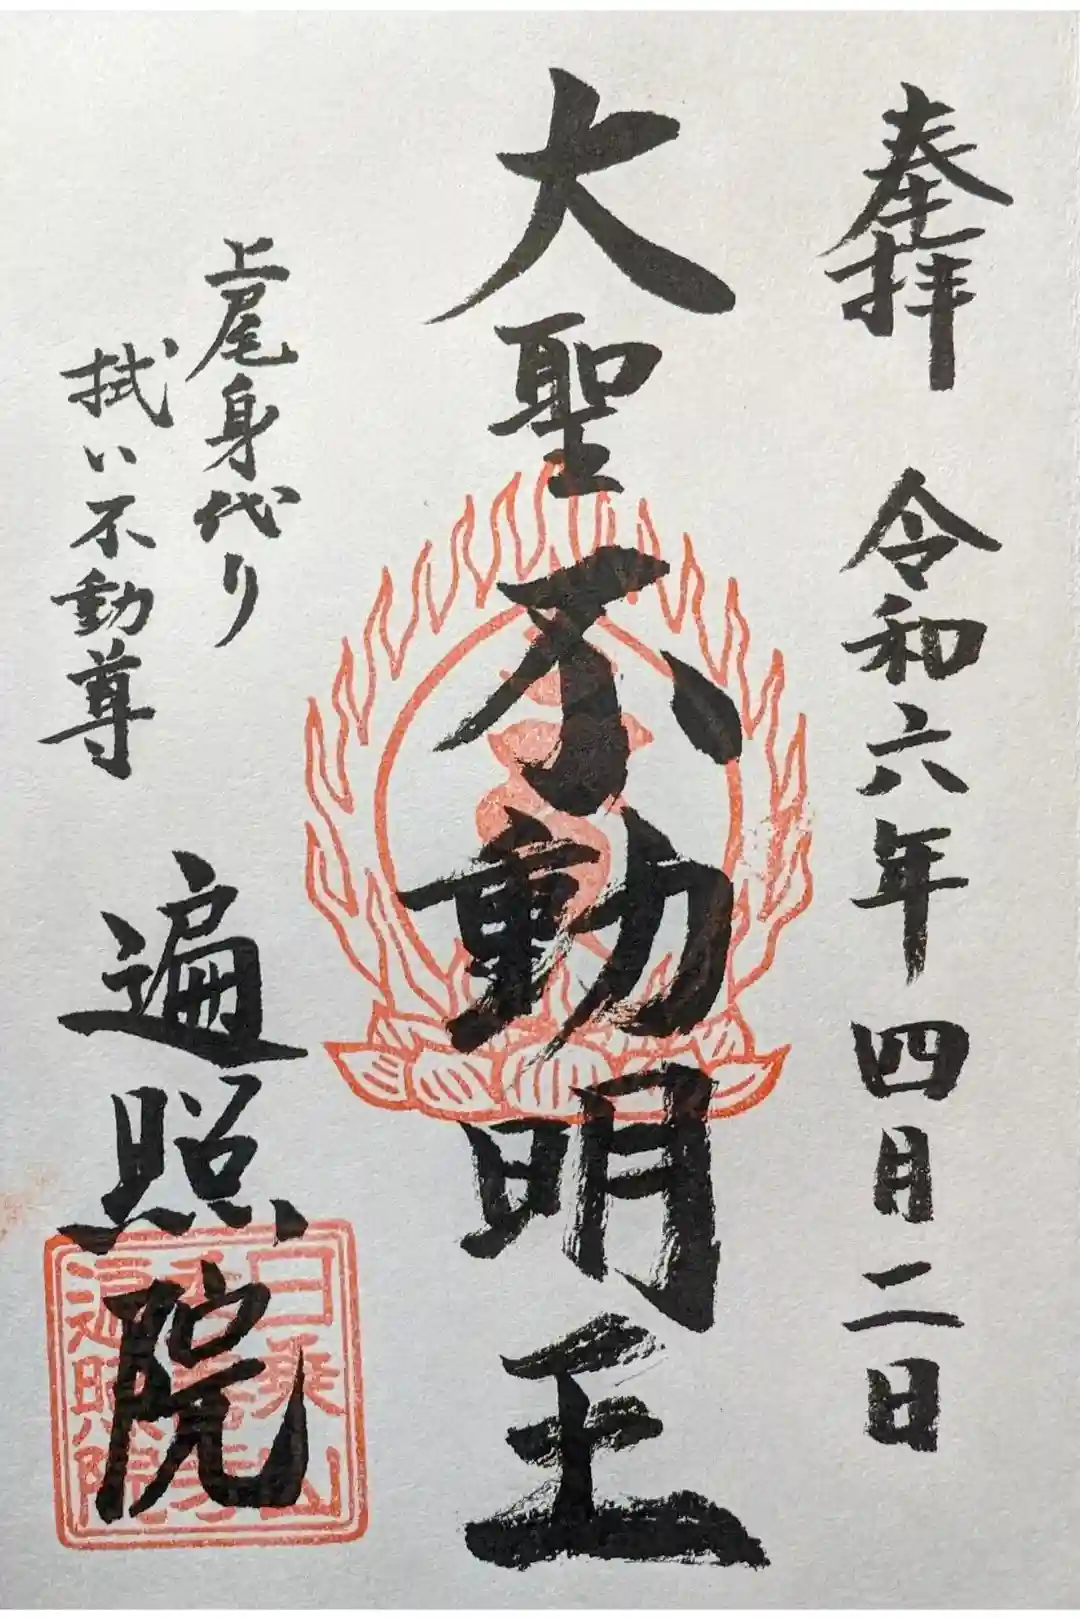 奉拝　令和六年四月二日
大聖不動明王
上尾身代り
拭い不動尊
遍照院
日乗山
遍照院